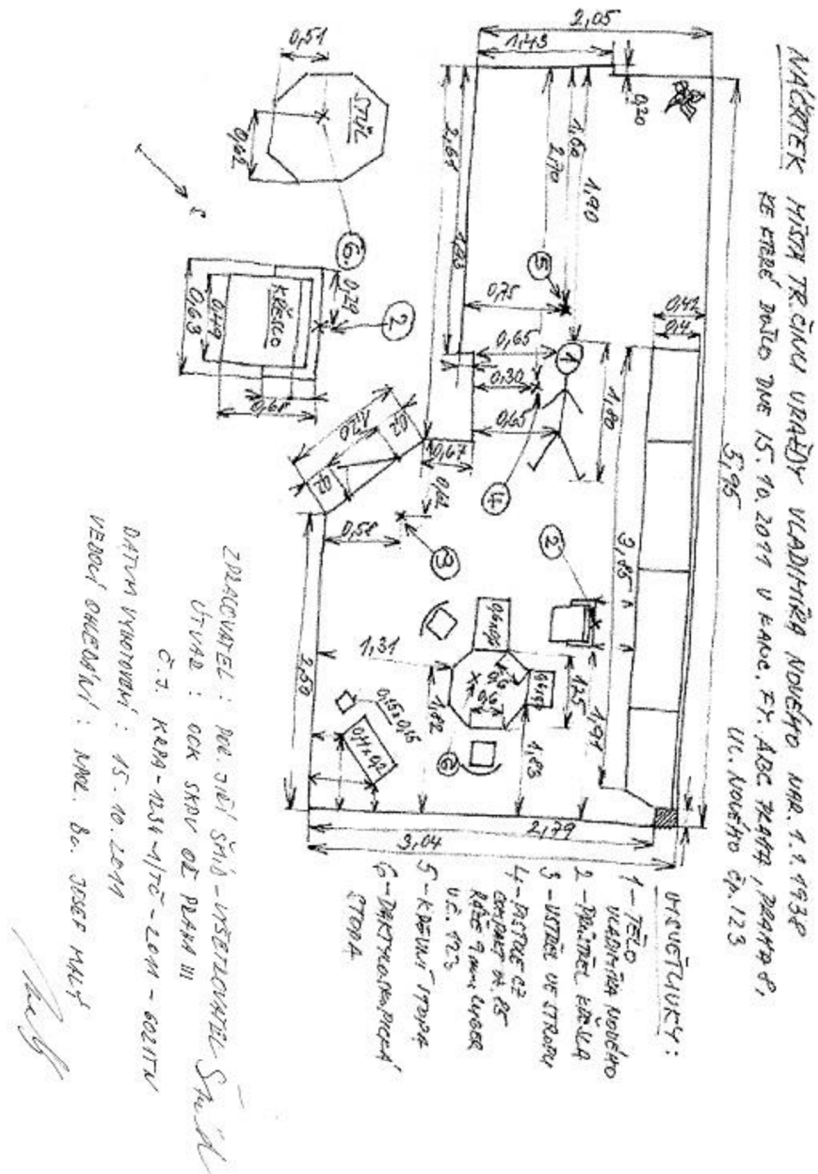 NÁČRTEK MÍSTA TR. ČINU VRAŽDY VLADIMÍRA NOVÉHO NAR. 1.1.1938
KE KTERÉ DOŠLO DNE 15.10.2011 V KANC. FY. ABC PRAHA, PRAHA 8,
UL. NOVÉHO ČP. 123
5,95
2,05
1,43
0,20
0,51
STŮL
0,62
6.
2,67
2,70
1,60
1,90
5
0,75
0,65
0,30
0,65
1
4
1,80
0,42
0,4
3,85
S
2
0,29
KŘESLO
0,49
0,63
0,68
1,20
0,2
0,2
0,67
0,58
3
2
1,31
0,6
0,6
1,25
1,91
1,82
1,83
6
0,15x0,15
2,50
2,79
3,04
VYSVĚTLIVKY:
1 - TĚLO
VLADIMÍRA NOVÉHO
2 - PRŮSTŘEL KŘESLA
3 - VSTŘEL VE STROPU
4 - PISTOLE CZ
COMPACT 85
RÁŽE 9 mm LUGER
V.Č. 123
5 - KREVNÍ STOPA
6 - DAKTYLOSKOPICKÁ
STOPA
ZPRACOVATEL: POR. JIŘÍ ŠMÍD - VYŠETŘOVATEL
ÚTVAR: OCK SKPV OŘ PRAHA III
Č.J. KRPA-1234-1/TČ-2011-6021TN
DATUM VYHOTOVENÍ: 15.10.2011
VEDOUCÍ OHLEDÁNÍ: Bc. JOSEF MALÝ